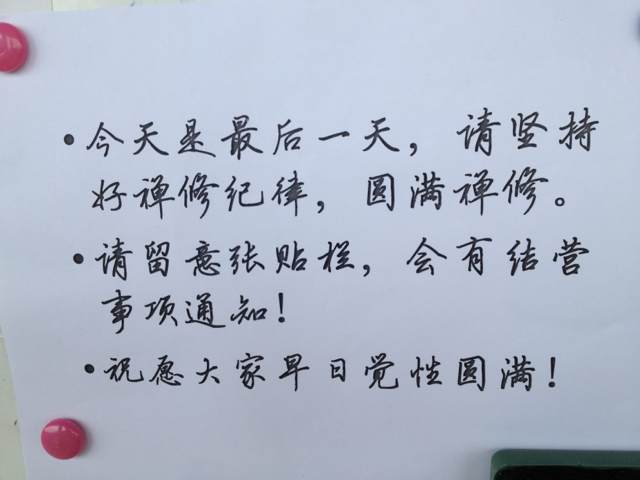 •今天是最后一天，请坚持
好禅修纪律，圆满禅修。
•请留意张贴栏，会有结营
事项通知！
•祝愿大家早日觉性圆满！